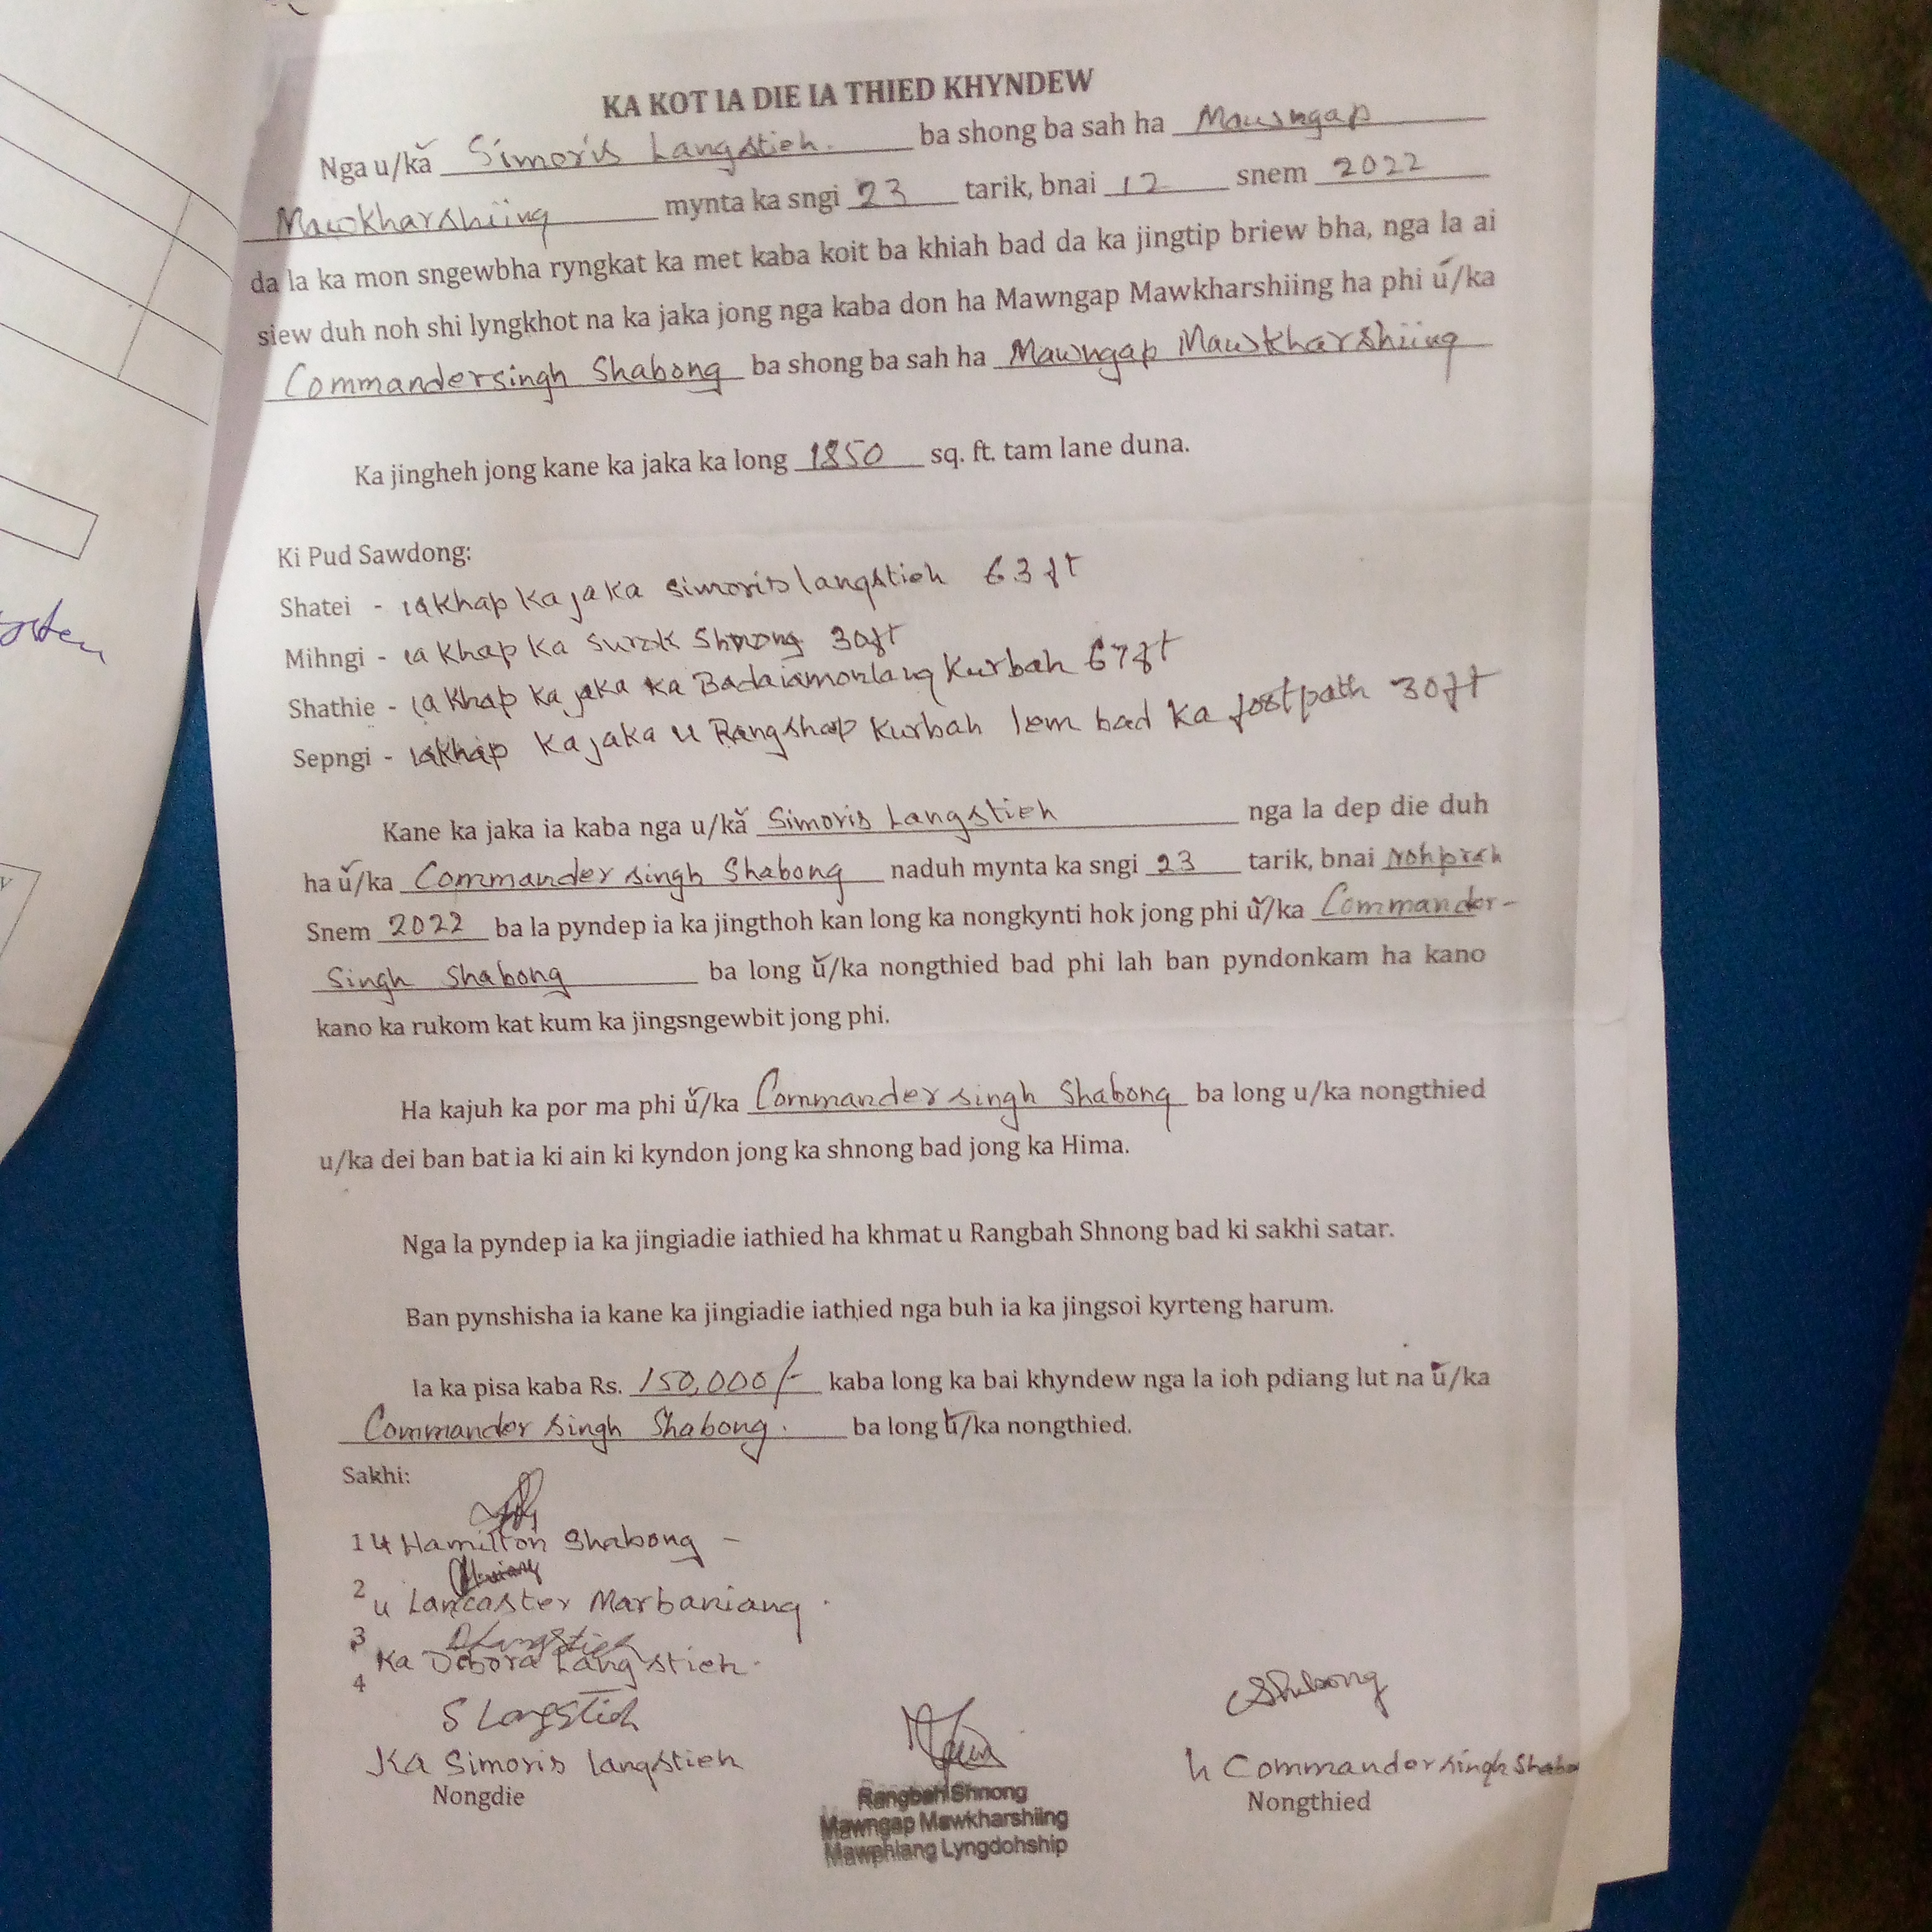 KA KOT IA DIE IA THIED KHYNDEW
Nga u/ka Simoris Langstieh. ba shong ba sah ha Mawngap
Mawkharshiing mynta ka sngi 23 tarik, bnai 12 snem 2022
da la ka mon sngewbha ryngkat ka met kaba koit ba khiah bad da ka jingtip briew bha, nga la ai
siew duh noh shi lyngkhot na ka jaka jong nga kaba don ha Mawngap Mawkharshiing ha phi u/ka
Commandersingh Shabong ba shong ba sah ha Mawngap Mawkharshiing
Ka jingheh jong kane ka jaka ka long 1850 sq. ft. tam lane duna.
Ki Pud Sawdong:
Shatei - iakhap ka jaka Simoris langstieh 63 ft
Mihngi - ia khap ka surok Shnong 30ft
Shathie - ia khap ka jaka ka Badaiamonlang Kurbah 67ft
Sepngi - iakhap ka jaka u Rangshap Kurbah lem bad ka footpath 30ft
Kane ka jaka ia kaba nga u/ka Simoris Langstieh nga la dep die duh
ha u/ka Commander singh Shabong naduh mynta ka sngi 23 tarik, bnai Nohprah
Snem 2022 ba la pyndep ia ka jingthoh kan long ka nongkynti hok jong phi u/ka Commander-
Singh Shabong ba long u/ka nongthied bad phi lah ban pyndonkam ha kano
kano ka rukom kat kum ka jingsngewbit jong phi.
Ha kajuh ka por ma phi u/ka Commander singh Shabong ba long u/ka nongthied
u/ka dei ban bat ia ki ain ki kyndon jong ka shnong bad jong ka Hima.
Nga la pyndep ia ka jingiadie iathied ha khmat u Rangbah Shnong bad ki sakhi satar.
Ban pynshisha ia kane ka jingiadie iathied nga buh ia ka jingsoi kyrteng harum.
Ia ka pisa kaba Rs. 150,000/- kaba long ka bai khyndew nga la ioh pdiang lut na u/ka
Commander singh Shabong. ba long u/ka nongthied.
Sakhi:
1 U Hamilton Shabong -
2 u Lancaster Marbaniang.
3 Ka Debora Langstieh.
DLangstieh
4
S Langstieh
Ka Simoris langstieh
Nongdie
Rangbah Shnong
Mawngap Mawkharshiing
Mawphlang Lyngdohship
CShabong
U Commandersingh Shabo
Nongthied